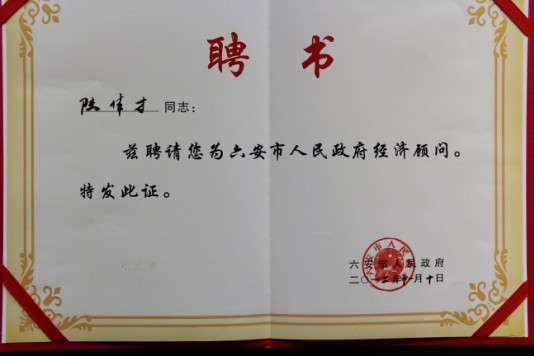 聘书
陆伟才 同志：
兹聘请您为六安市人民政府经济顾问。
特发此证。
六安市人民政府
二〇一二年 月十日